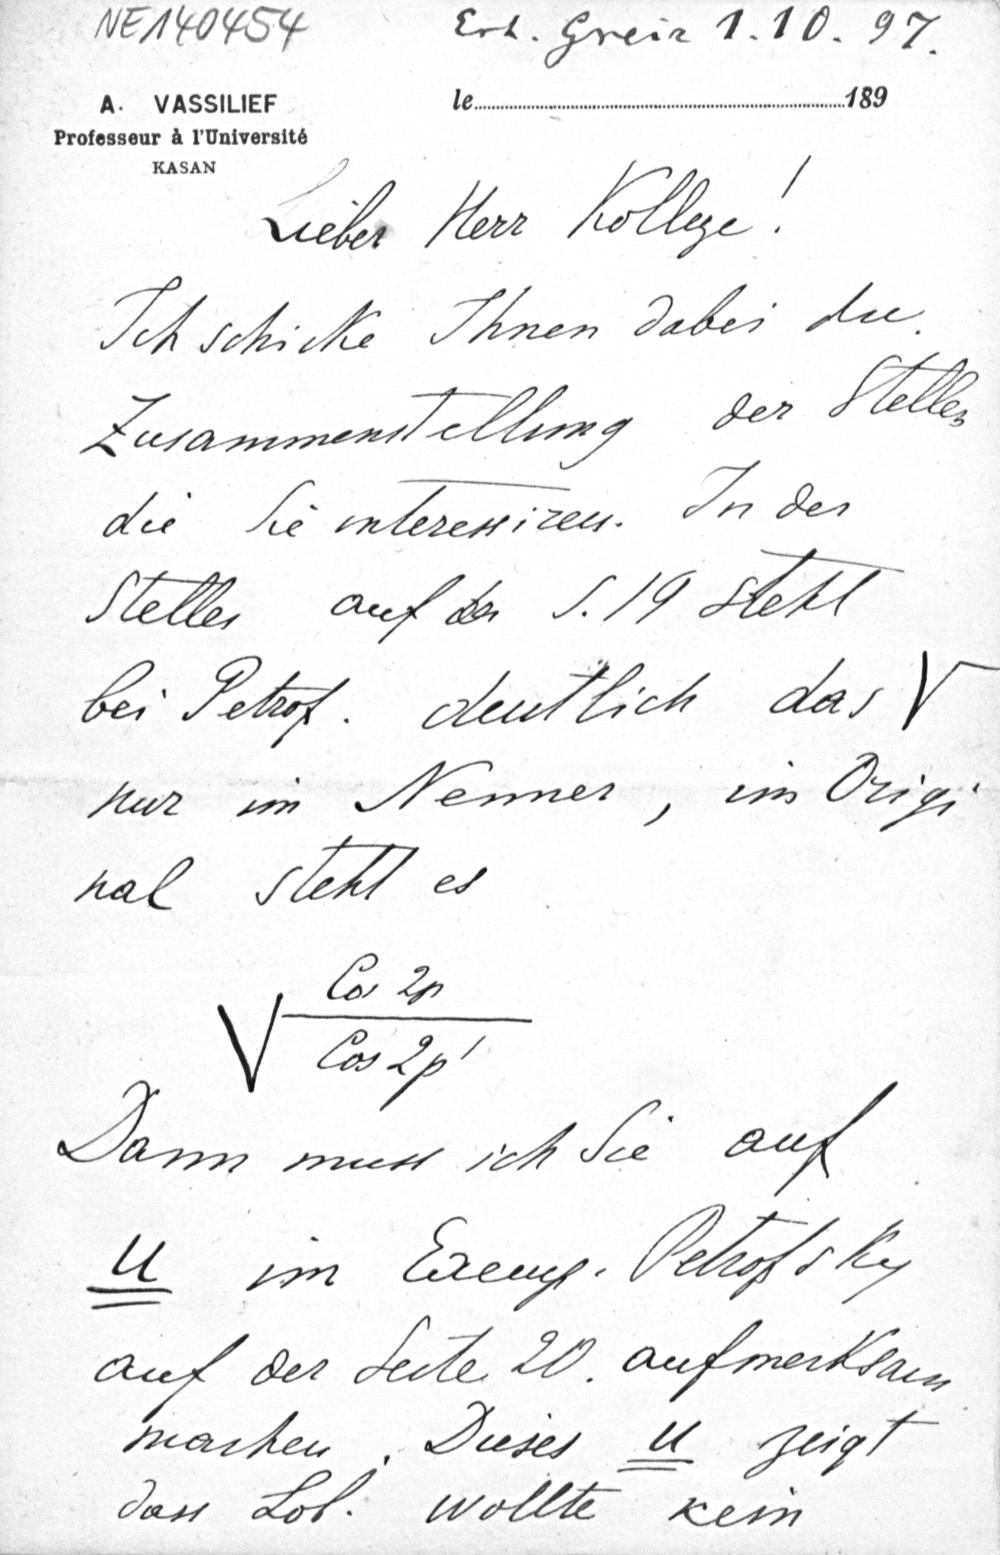 NE140454
Erh. Greiz 1.10.97.
A. VASSILIEF
Professeur à l'Université
KASAN
le 189
Lieber Herr Kollege!
Ich schicke Ihnen dabei die
Zusammenstellung der Stellen
die Sie interessiren. In der
Stelle auf der S. 19 steht
bei Petrof. deutlich das √
nur im Nenner, im Origi
nal steht es
√ Cos 2p / Cos 2p'
Dann muss ich Sie auf
u im Exemp. Petrofsky
auf der Seite 20. aufmerksam
machen. Dieses u zeigt
dass Lob. wollte kein